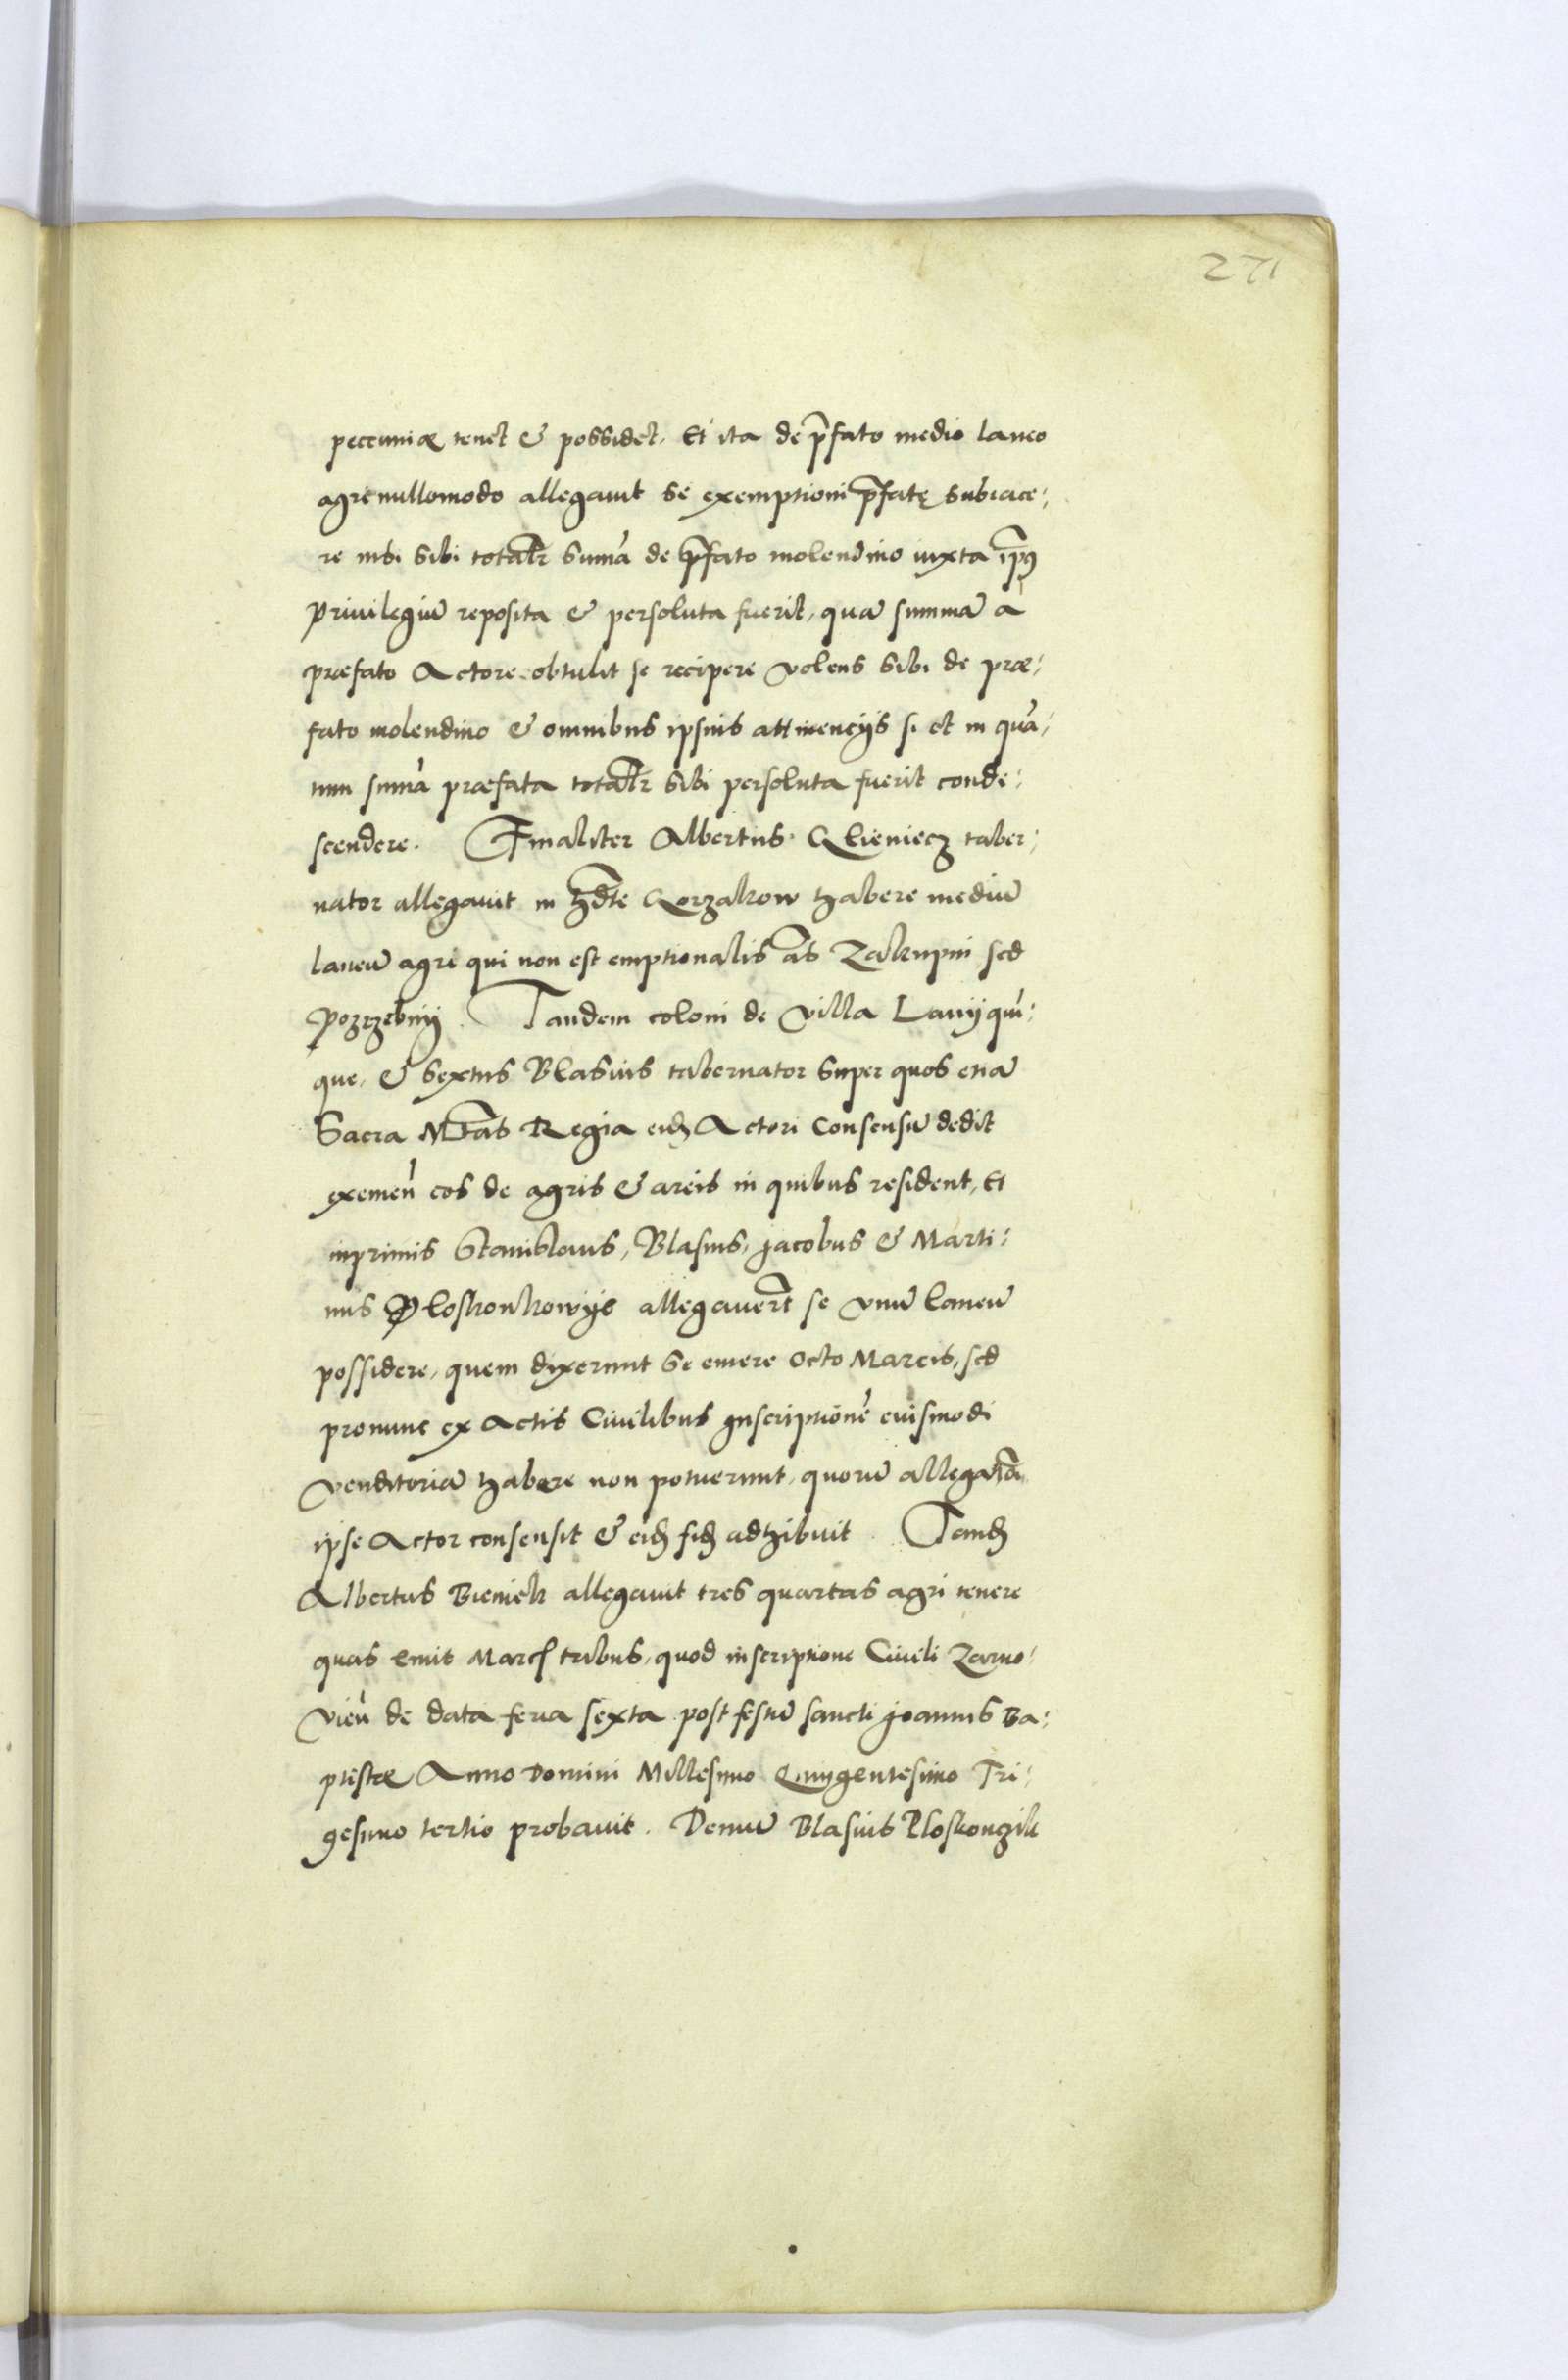 271
pecuniæ tenet & possidet, Et ita de p̄fato medio laneo
agri nullomodo allegauit se exemptioni p̄fatę subiace:
re nisi sibi totalr̄ sum̄a de p̄fato molendino iuxta ip̄ius
Priuilegiū reposita & persoluta fuerit, quā summā a
præfato Actore obtulit se recipere volens sibi de præ:
fato molendino & omnibus ipsius attinencijs si et in quā:
tum sum̄a præfata totalr̄ sibi persoluta fuerit conde:
scendere. Finaliter Albertus Klieniecz taber:
nator allegauit in hr̄dte Korzalkow habere mediū
laneū agri qui non est emptionalis al̄s Zakupni sed
Pozrzebnij. Tandem coloni de villa Lanij quī:
que, & sextus Blasius tabernator super quos etiā
Sacra M̄tas Regia eidē Actori Consensū dedit
exemen̄ eos de agris & areis in quibus resident, Et
inprimis Stanislaus, Blasius, Jacobus & Marti:
nus Ploskonkowije allegauer̄t se vnū laneū
possidere, quem dixerunt se emere octo Marcis, sed
pronunc ex Actis Ciuilibus Inscriptionē euismodi
venditoriā habere non potuerunt, quorū allegat̄a
ipse Actor consensit & eidē fidē adhibuit. Tandē
Albertus Bieniek allegauit tres quartas agri tenere
quas emit Marc̄ tribus, quod inscriptione Ciuili Zarno:
vien̄ de data feria sexta post festū sancti Joannis Ba:
ptistæ Anno Domini Millesimo Quingentesimo Tri:
gesimo tertio probauit. Demū Blasius Ploskonzik